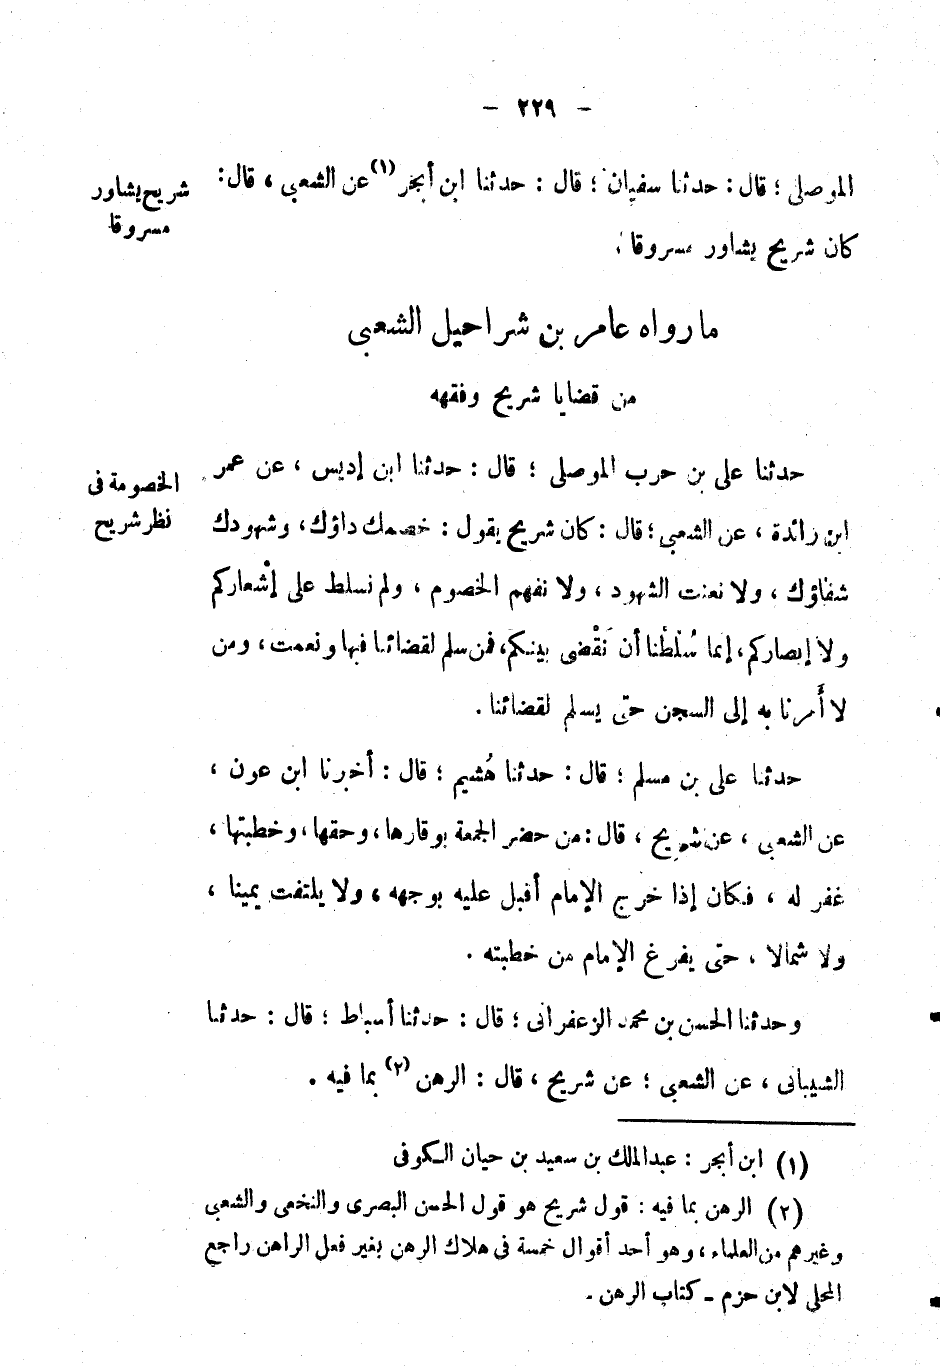 — ٢٢٩ —
الموصلى ؛ قال : حدثنا سفيان ؛ قال : حدثنا ابن أبجر (١) عن الشعبى ، قال :
كان شريح يشاور مسروقا .
شريح يشاور
مسروقا
ما رواه عامر بن شراحيل الشعبى
من قضايا شريح وفقهه
حدثنا على بن حرب الموصلى ؛ قال : حدثنا ابن إديس ، عن عمر
ابن زائدة ، عن الشعبى ؛ قال : كان شريح يقول : خصمك داؤك ، وشهودك
شفاؤك ، ولا نعنت الشهود ، ولا نفهم الخصوم ، ولم نسلط على أشعاركم
ولا إبصاركم ، إنما سُلطْنا أن نَقْضى بينكم ، فمن سلم لقضائنا فبها ونعمت ، ومن
لا أَمرنا به إلى السجن حتى يسلم لقضائنا .
الخصومة فى
نظر شريح
حدثنا على بن مسلم ؛ قال : حدثنا هُشيم ؛ قال : أخبرنا ابن عون ،
عن الشعبى ، عن شريح ، قال : من حضر الجمعة بوقارها ، وحقها ، وخطبتها ،
غفر له ، فكان إذا خرج الإمام أقبل عليه بوجهه ، ولا يلتفت يمينا ،
ولا شمالا ، حتى يفرغ الإمام من خطبته .
وحدثنا الحسن بن محمد الزعفرانى ؛ قال : حدثنا أسباط ؛ قال : حدثنا
الشيبانى ، عن الشعبى ؛ عن شريح ، قال : الرهن (٢) بما فيه .
(١) ابن أبجر : عبدالملك بن سعيد بن حيان الكوفى
(٢) الرهن بما فيه : قول شريح هو قول الحسن البصرى والنخعى والشعبى
وغيرهم من العلماء ، وهو أحد أقوال خمسة فى هلاك الرهن بغير فعل الراهن راجع
المحلى لابن حزم ـ كتاب الرهن .